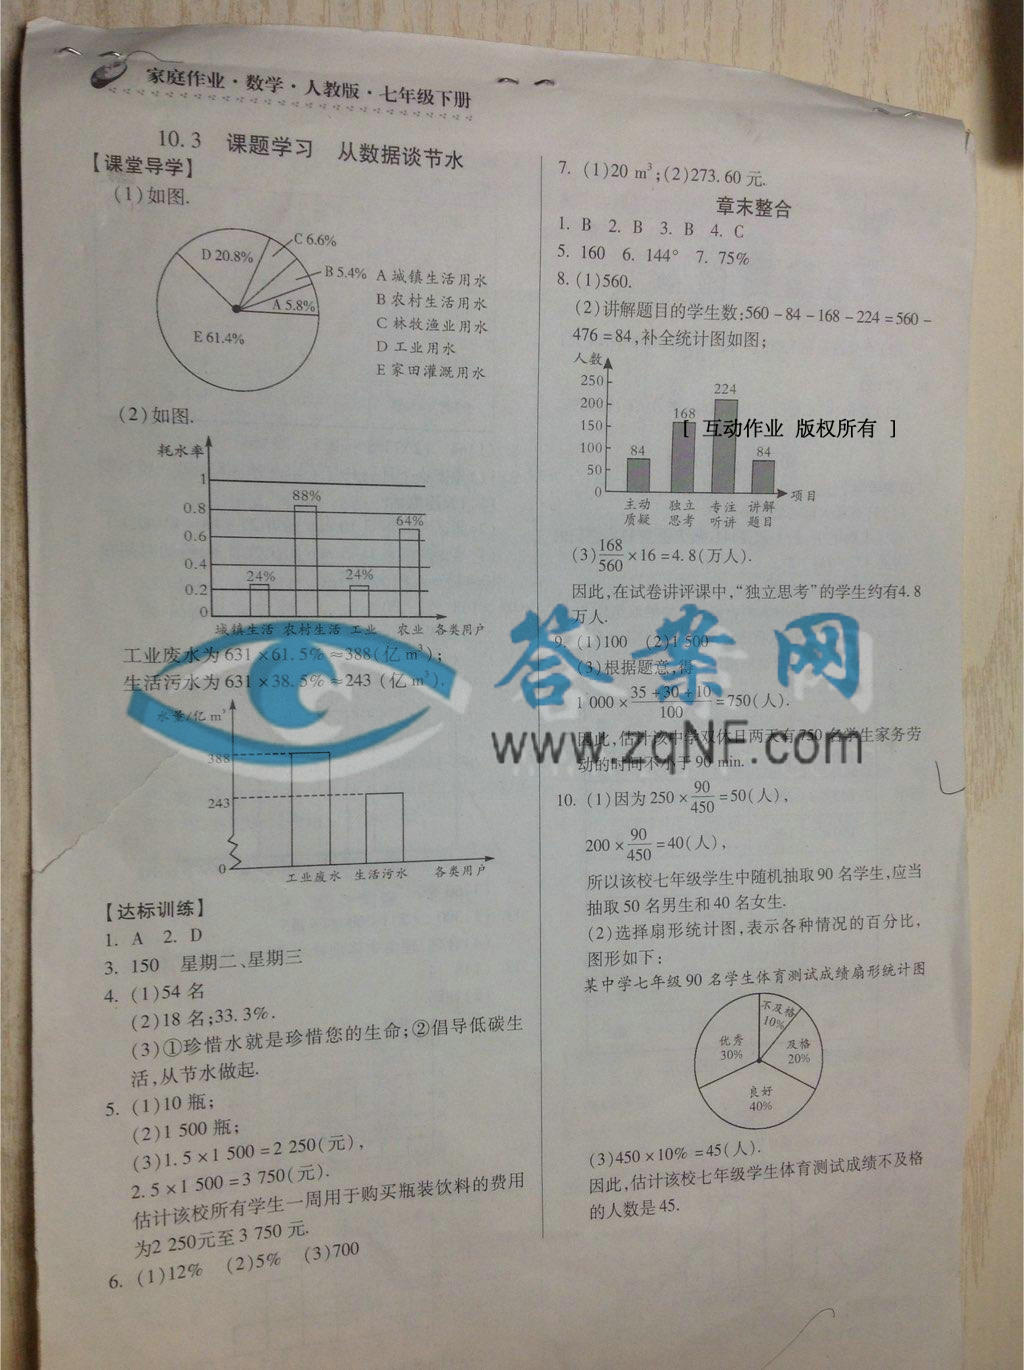 家庭作业·数学·人教版·七年级下册
10.3 课题学习 从数据谈节水
【课堂导学】
(1)如图.
C 6.6%
D 20.8%
B 5.4%
A 5.8%
E 61.4%
A 城镇生活用水
B 农村生活用水
C 林牧渔业用水
D 工业用水
E 家田灌溉用水
(2)如图.
耗水率
1
0.8
0.6
0.4
0.2
0
24%
88%
24%
64%
城镇生活 农村生活 工业 农业 各类用户
工业废水为 631×61.5%≈388(亿 m³);
生活污水为 631×38.5%≈243(亿 m³).
水量/亿 m³
388
243
0
工业废水 生活污水 各类用户
【达标训练】
1. A 2. D
3. 150 星期二、星期三
4. (1)54 名
(2)18 名;33.3%.
(3)①珍惜水就是珍惜您的生命;②倡导低碳生
活,从节水做起.
5. (1)10 瓶;
(2)1 500 瓶;
(3)1.5×1 500=2 250(元),
2.5×1 500=3 750(元).
估计该校所有学生一周用于购买瓶装饮料的费用
为2 250元至 3 750 元.
6. (1)12% (2)5% (3)700
7. (1)20 m³;(2)273.60 元.
章末整合
1. B 2. B 3. B 4. C
5. 160 6. 144° 7. 75%
8. (1)560.
(2)讲解题目的学生数:560-84-168-224=560-
476=84,补全统计图如图;
人数
250
200
150
100
50
0
84
168
224
84
主动质疑 独立思考 专注听讲 讲解题目 项目
[ 互动作业 版权所有 ]
(3)168/560×16=4.8(万人).
因此,在试卷讲评课中,“独立思考”的学生约有4.8
万人.
9. (1)100 (2)1 500
(3)根据题意,得
1 000×(35+30+10)/100=750(人).
因此,估计该中学双休日两天有 750 名学生家务劳
动的时间不小于 90 min.
答案网
www.zqNF.com
10. (1)因为 250×90/450=50(人),
200×90/450=40(人),
所以该校七年级学生中随机抽取 90 名学生,应当
抽取 50 名男生和 40 名女生.
(2)选择扇形统计图,表示各种情况的百分比,
图形如下:
某中学七年级 90 名学生体育测试成绩扇形统计图
不及格
10%
优秀
30%
及格
20%
良好
40%
(3)450×10%=45(人).
因此,估计该校七年级学生体育测试成绩不及格
的人数是 45.